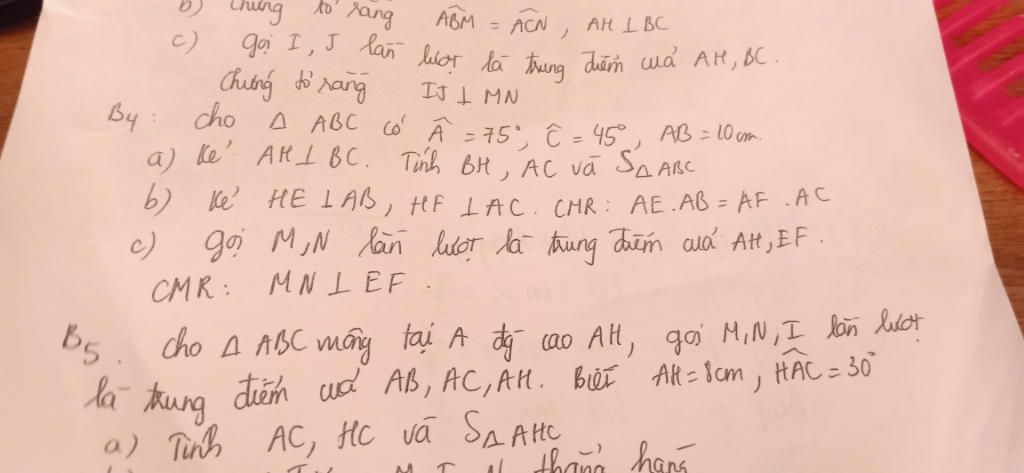 b) Chứng tỏ rằng ABM = ACN , AH ⊥ BC
c) gọi I, J lần lượt là trung điểm của AH, BC.
Chứng tỏ rằng IJ ⊥ MN
B4 : cho Δ ABC có Â = 75°, Ĉ = 45°, AB = 10cm.
a) Kẻ AH ⊥ BC. Tính BH, AC và SΔABC
b) Kẻ HE ⊥ AB, HF ⊥ AC. CMR: AE.AB = AF.AC
c) gọi M,N lần lượt là trung điểm của AH, EF.
CMR: MN ⊥ EF.
B5. cho Δ ABC tại A đg cao AH, gọi M,N,I lần lượt
là trung điểm của AB, AC, AH. Biết AH = 8cm, HAC = 30°
a) Tính AC, HC và SΔAHC
M, I, N thẳng hàng